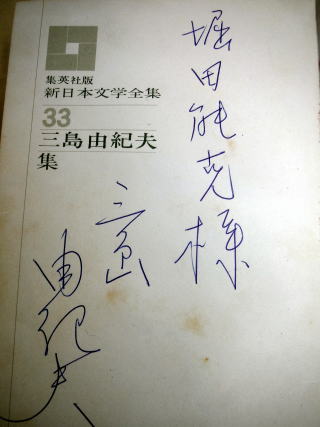 集英社版
新日本文学全集
33
三島由紀夫
集
堀田能克様
三島
由紀夫